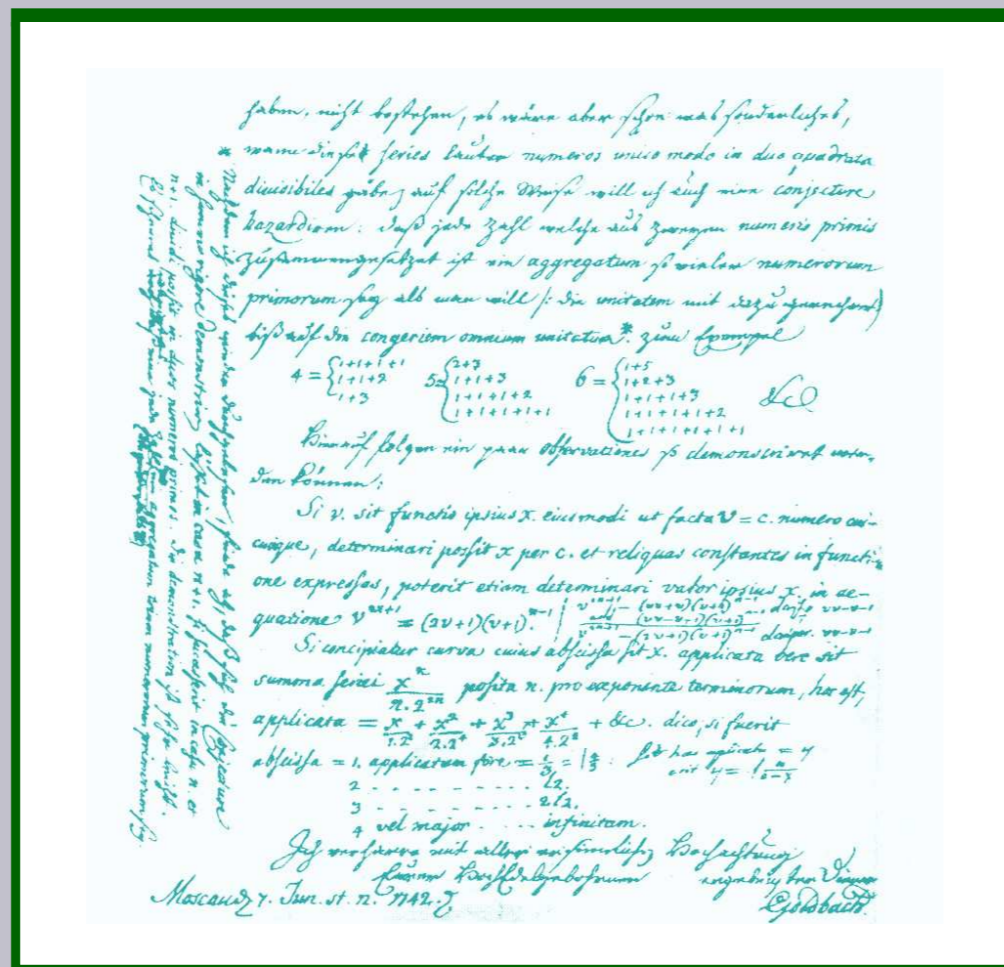 haben, nicht bestehen, es wäre aber schon was sonderliches,
wann diese series lauter numeros unico modo in duo quadrata
divisibiles gäbe, auf solche Weise will ich auch eine conjecture
hazardiren: daß jede Zahl welche aus zweyen numeris primis
zusammengesetzet ist ein aggregatum so vieler numerorum
primorum sey als man will (: die unitatem mit dazu gerechnet)
biß auf die congeriem omnium unitatum* zum Exempel
4 = { 1+1+1+1 5 = { 2+3 6 = { 1+5
1+1+2 1+1+3 1+2+3
1+3 1+1+1+2 1+1+1+3 &c
1+1+1+1+1 1+1+1+1+2
1+1+1+1+1+1
Hierauf folgen ein paar observationes so demonstriret wer-
den können:
Si v. sit functio ipsius x. eiusmodi ut facta v = c. numero cui-
cunque, determinari possit x per c. et reliquas constantes in functi-
one expressas, poterit etiam determinari valor ipsius x. in ae-
quatione v^{2n+1} = (2v+1)(v+1)^{n-1}
Si concipiatur curva cuius abscissa sit x. applicata vero sit
summa seriei x^n/n.2^{2n} posita n. pro exponente terminorum, hoc est,
applicata = x/1.2^2 + x^2/2.2^4 + x^3/3.2^6 + x^4/4.2^8 + &c. dico, si fuerit
abscissa = 1. applicatam fore = = l 4/3
2 . . . . . . . . l2.
3 . . . . . . . . 2l2.
4 vel major . . . . infinitam.
Ich verharre mit aller ersinnlichen Hochachtung
Eurer HochEdelgebohrnen ergebenster Diener
Moscau 7. Jun. st. n. 1742. Goldbach.
* Nachdem ich dieses wieder durchgelesen, finde ich, daß sich die Conjecture
in summo rigore demonstriren lässet in casu n+1. si successerit in casu n. et
n+1. dividi possit in duos numeros primos. Die demonstration ist sehr leicht.
Es scheinet wenigstens, daß eine jede Zahl ein aggregatum trium numerorum primorum sey.